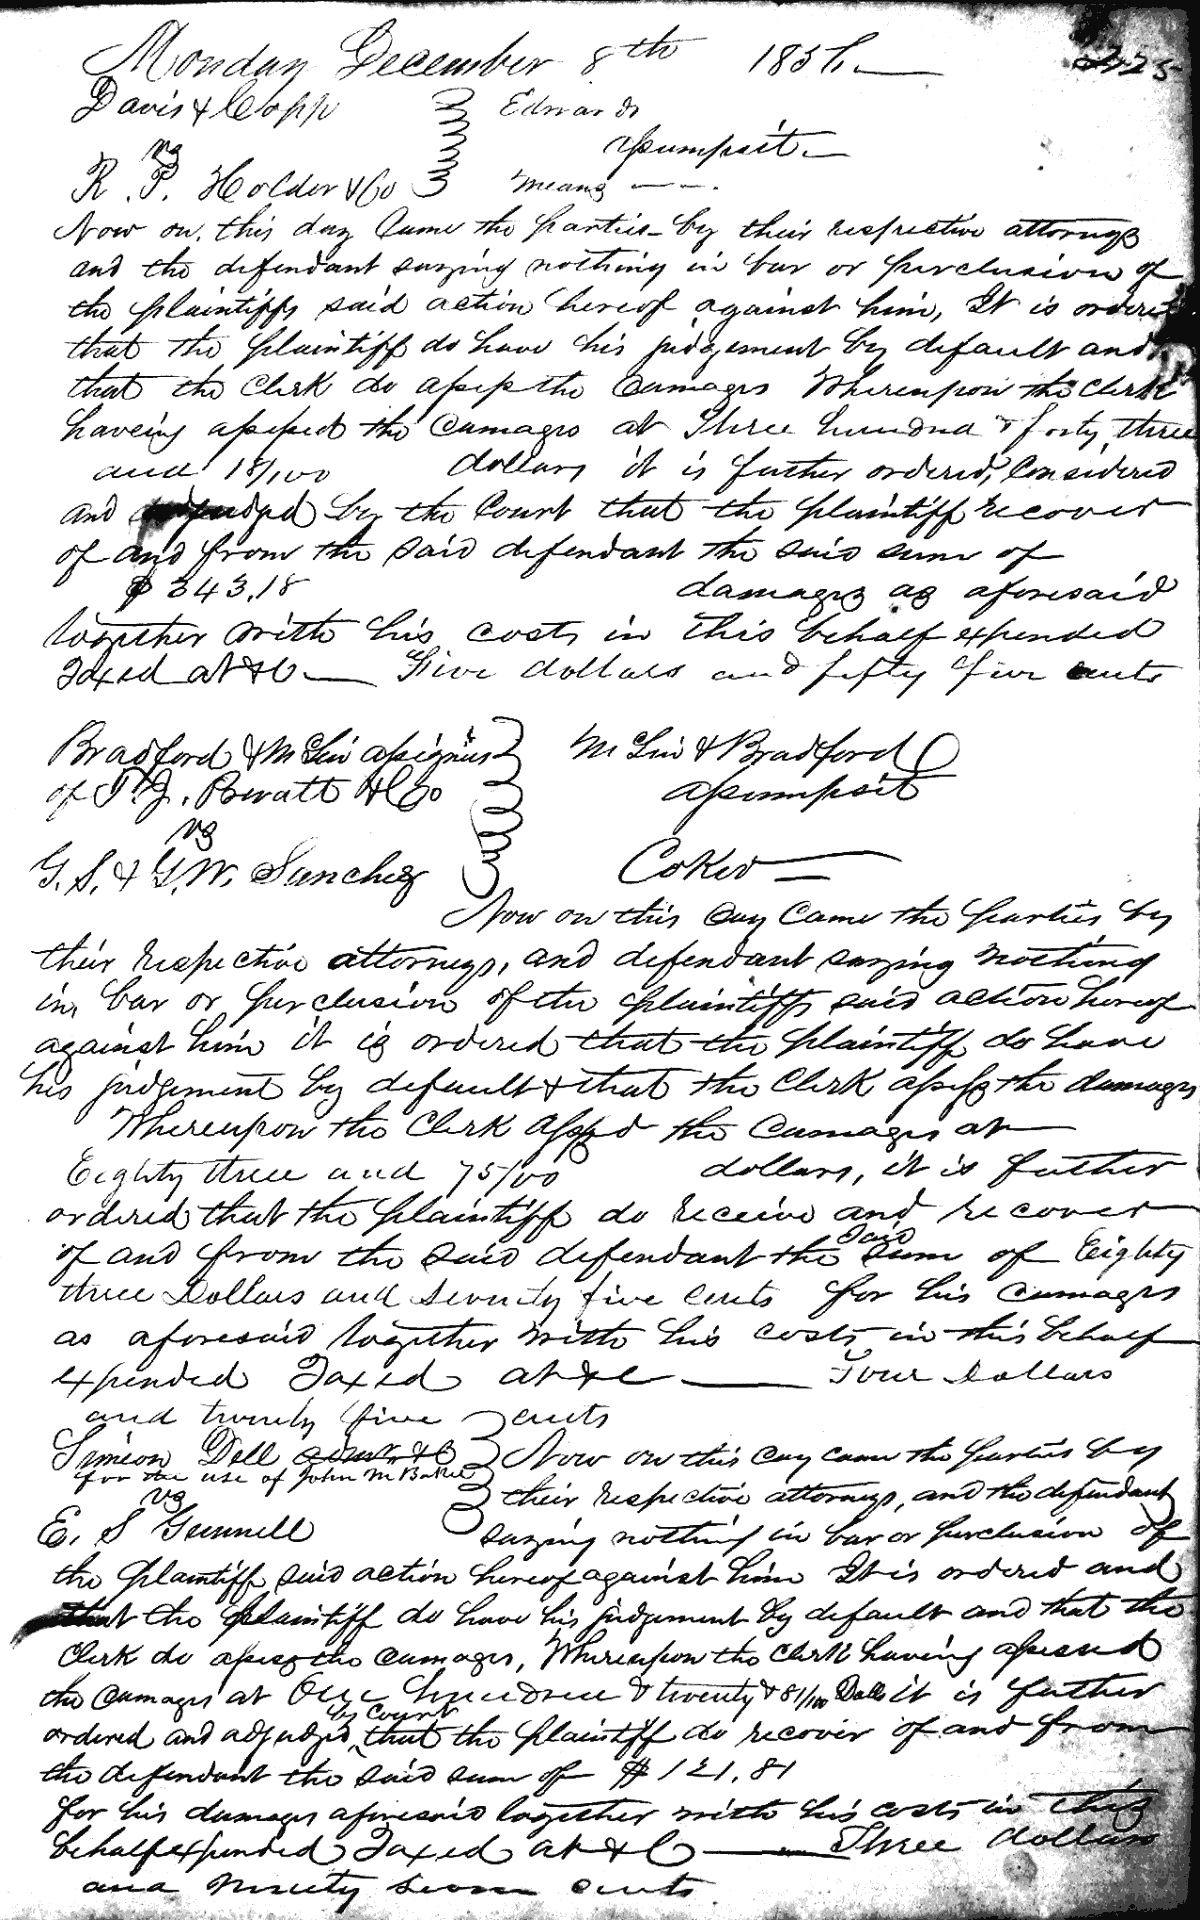 Monday December 8th 1856.
225
Davis & Copp Edwards
vs assumpsit
R. P. Holder & Co Means
Now on this day Came the parties by their respective attorneys
and the defendant saying nothing in bar or perclusion of
the plaintiffs said action hereof against him, It is ordered
that the plaintiff do have his judgement by default and
that the Clerk do assess the damages Whereupon the Clerk
haveing assessed the damages at Three hundred & forty three
and 18/100 dollars it is further ordered, Considered
and adjudged by the Court that the plaintiff recover
of and from the said defendant the said sum of
$343.18 damages as aforesaid
together with his costs in this behalf expended
Taxed at &C Five dollars and fifty five cents
Bradford & McLin assignees McLin & Bradford
of T. J. Prevatt & Co assumpsit
vs
G. S. & G. W. Sanchez Coker
Now on this day Came the parties by
their respective attorneys, and defendant saying nothing
in bar or perclusion of the plaintiffs said action hereof
against him it is ordered that the plaintiff do have
his judgement by default & that the Clerk assess the damages
Whereupon the Clerk assesd the damages at
Eighty three and 75/100 dollars, it is further
ordered that the plaintiff do receive and recover
of and from the said defendant the said sum of Eighty
three Dollars and Seventy five cents for his damages
as aforesaid together with his costs in this behalf
expended Taxed at &C Four Dollars
and twenty five cents
Simeon Dell Now on this day came the parties by
for the use of John M Baker
vs their respective attorneys, and the defendant
E. S Gunnell saying nothing in bar or perclusion of
the plaintiff said action hereof against him It is ordered and
that the plaintiff do have his judgement by default and that the
Clerk do assess the damages, Whereupon the Clerk having assessed
the damages at One hundred & twenty & 81/100 Dolls it is further
ordered and adjudged by Court that the plaintiff do recover of and from
the defendant the said sum of $121.81
for his damages aforesaid together with his costs in this
behalf expended Taxed at &C Three dollars
and Ninety seven cents